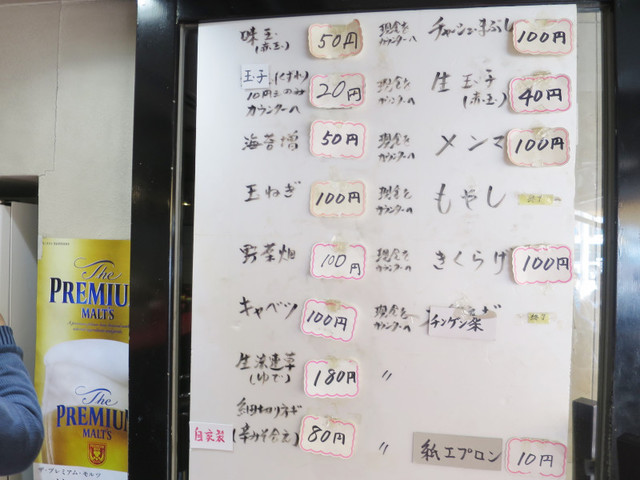 味玉
(赤玉)
50円
現金を
カウンターへ
チャーシューまぶし
100円
玉子(くずれ)
10円玉のみ
カウンターへ
20円
現金を
カウンターへ
生玉子
(赤玉)
40円
海苔増
50円
現金を
カウンターへ
メンマ
100円
玉ねぎ
100円
現金を
カウンターへ
もやし
野菜畑
100円
現金を
カウンターへ
きくらげ
100円
キャベツ
100円
現金を
カウンターへ
チンゲン菜
生ほうれん草
(ゆで)
180円
〃
自家製
細切りネギ
(辛みそ合え)
80円
〃
紙エプロン
10円
The
PREMIUM
MALT'S
The
PREMIUM
MALT'S
ザ・プレミアム・モルツ